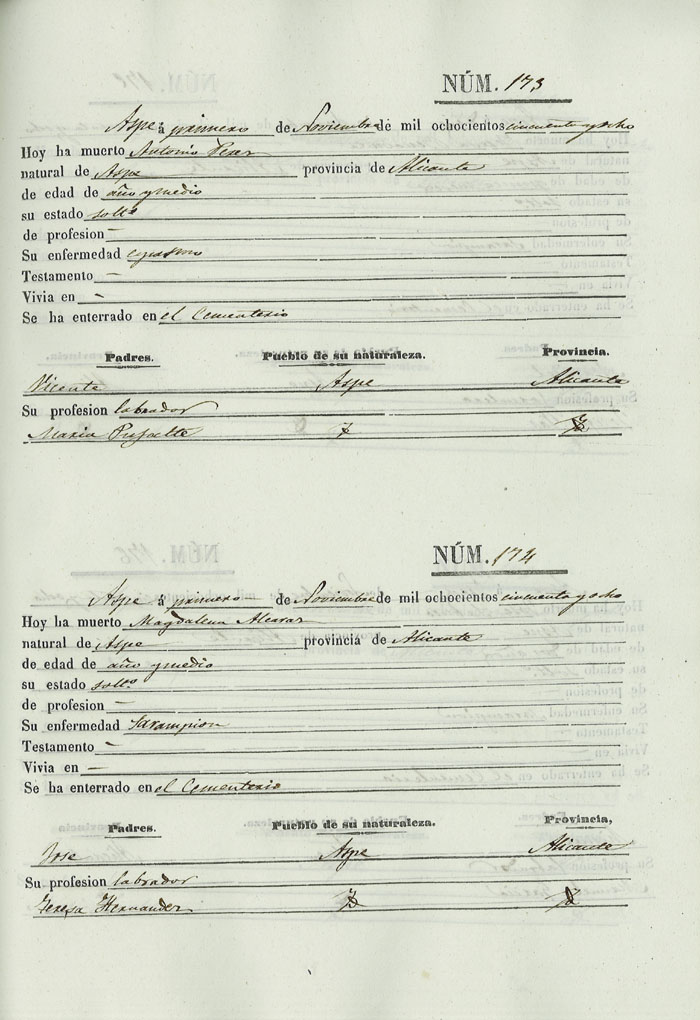 NÚM. 173
Aspe á primero de Noviembre de mil ochocientos cincuenta y ocho
Hoy ha muerto Antonio Perez
natural de Aspe provincia de Alicante
de edad de año y medio
su estado solto
de profesion —
Su enfermedad
Testamento —
Vivia en —
Se ha enterrado en el Cementerio
Padres. Pueblo de su naturaleza. Provincia.
Vicente Aspe Alicante
Su profesion labrador
Maria
NÚM. 174
Aspe á primero de Noviembre de mil ochocientos cincuenta y ocho
Hoy ha muerto Magdalena Alcaraz
natural de Aspe provincia de Alicante
de edad de año y medio
su estado solto
de profesion —
Su enfermedad Sarampion
Testamento —
Vivia en —
Se ha enterrado en el Cementerio
Padres. Pueblo de su naturaleza. Provincia,
Jose Aspe Alicante
Su profesion labrador
Teresa Hernandez